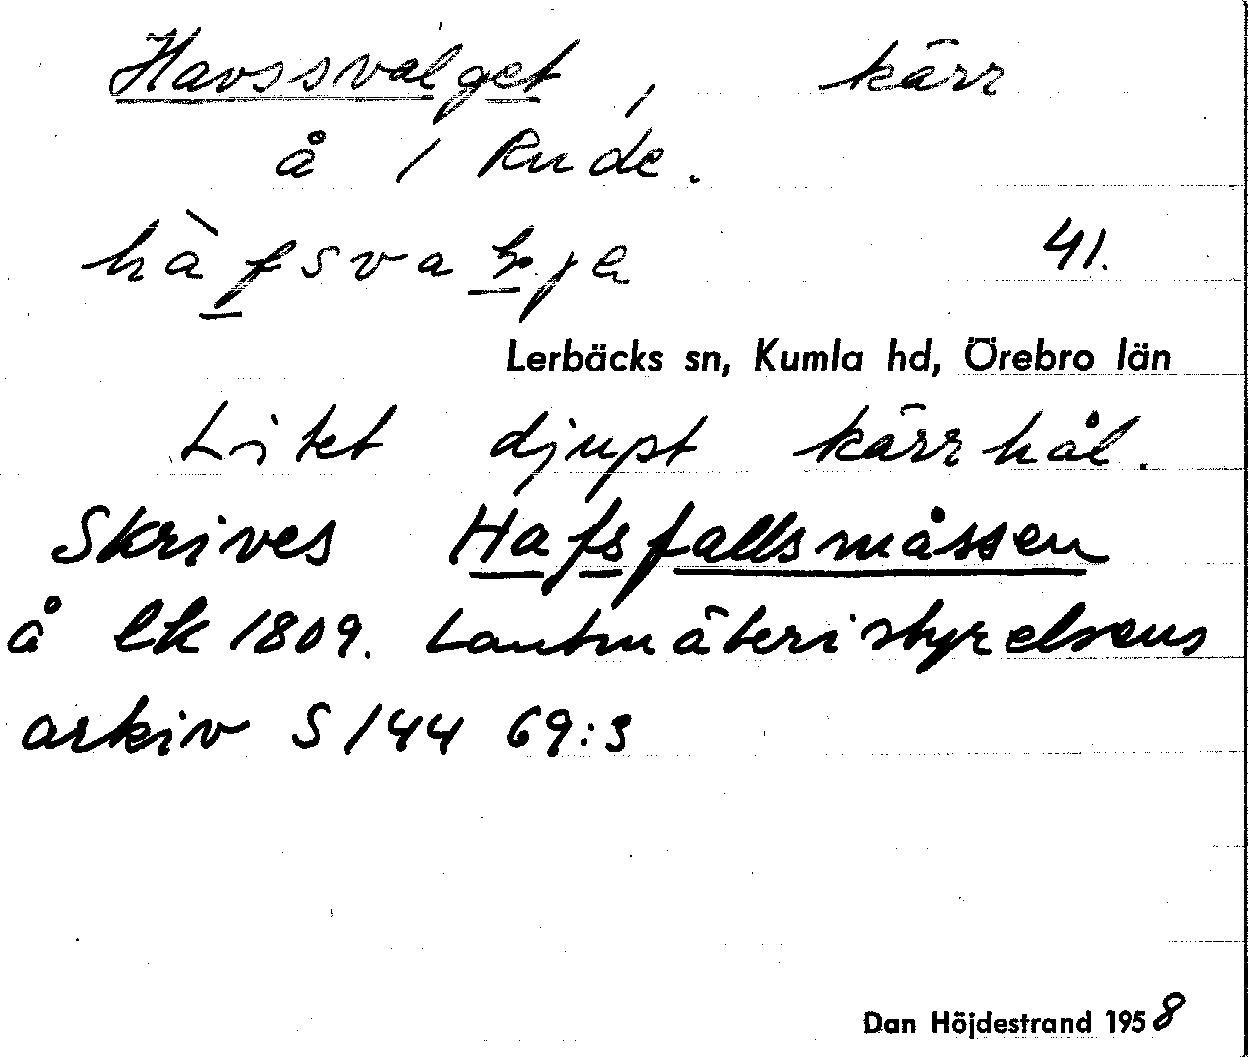 Havssvalget, kärr
å 1 Rude.
41.
Lerbäcks sn, Kumla hd, Örebro län
Litet djupt kärrhål.
Skrives Hafsfallsmåssen
å lk 1809. Lantmäteristyrelsens
arkiv S 144 69:3
Dan Höjdestrand 1958